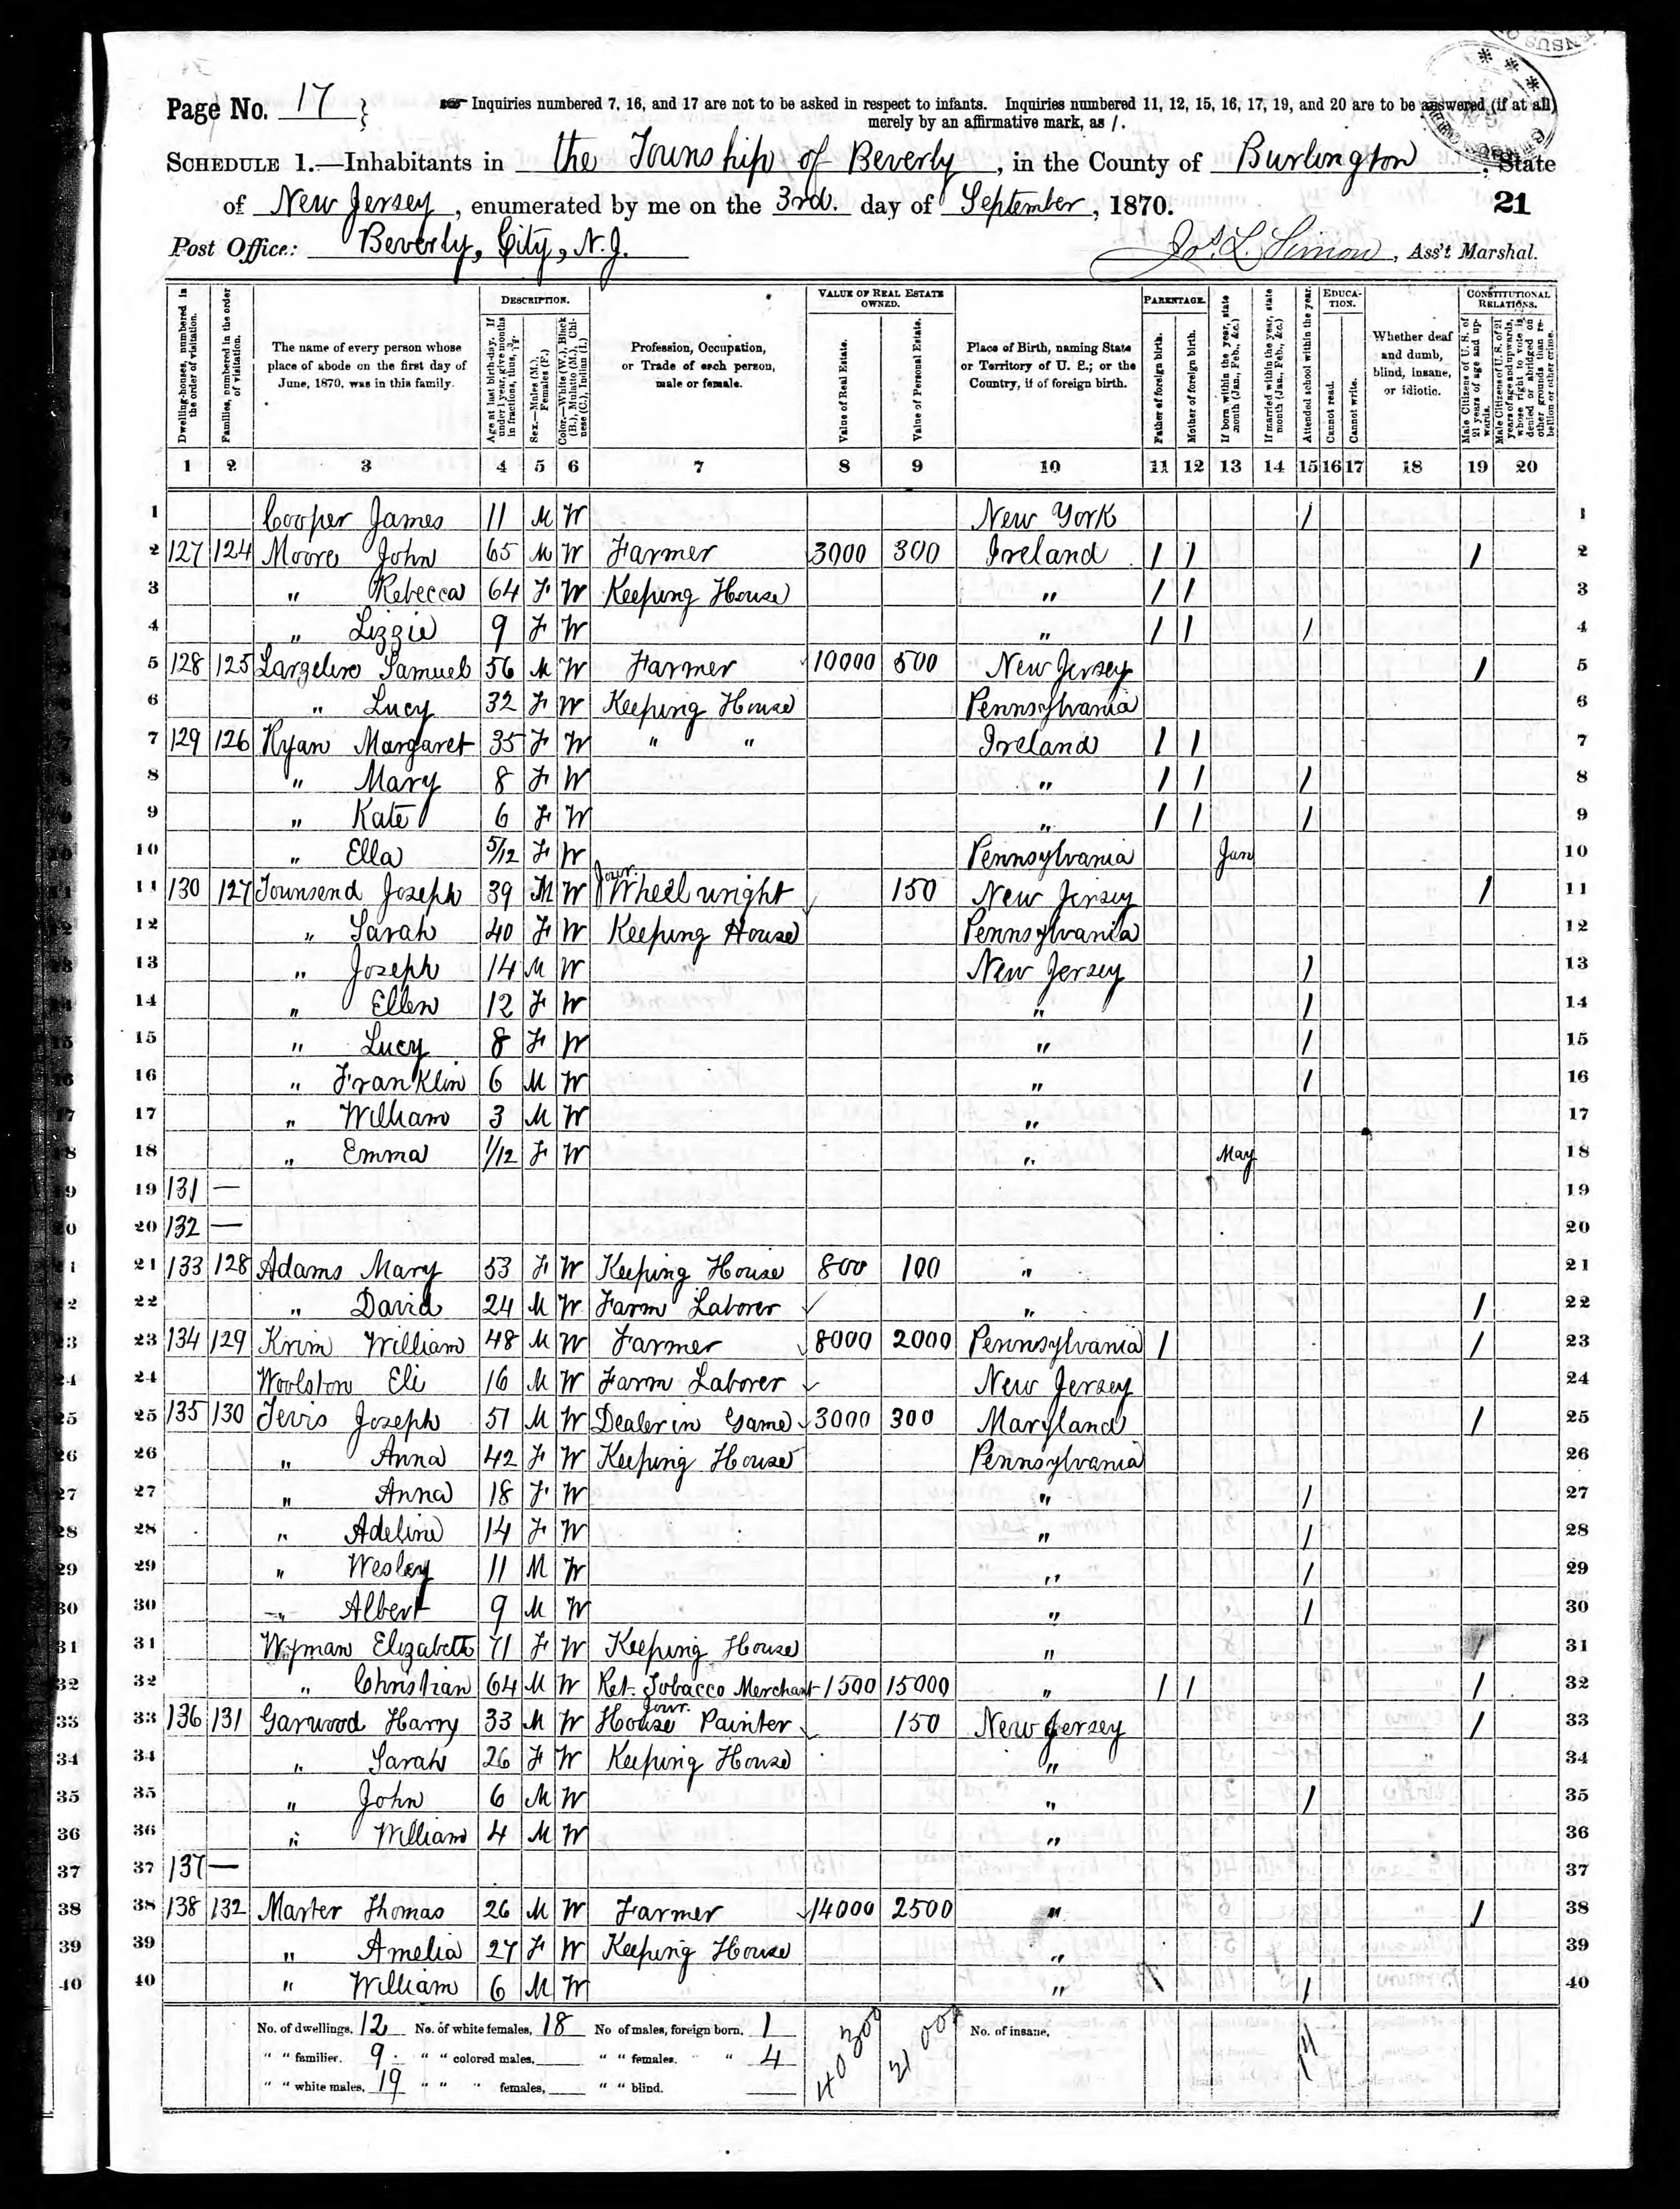 Page No. 17
Inquiries numbered 7, 16, and 17 are not to be asked in respect to infants. Inquiries numbered 11, 12, 15, 16, 17, 19, and 20 are to be answered (if at all)
merely by an affirmative mark, as /.
SCHEDULE 1.—Inhabitants in the Township of Beverly, in the County of Burlington, State
of New Jersey, enumerated by me on the 3rd. day of September, 1870. 21
Post Office: Beverly, City, N.J. Jos. L. Simon, Ass't Marshal.
DESCRIPTION. VALUE OF REAL ESTATE OWNED. PARENTAGE. EDUCATION. CONSTITUTIONAL RELATIONS.
Dwelling-houses, numbered in the order of visitation.
Families, numbered in the order of visitation.
The name of every person whose place of abode on the first day of June, 1870, was in this family.
Age at last birth-day. If under 1 year, give months in fractions, thus, 3/12.
Sex.—Males (M.), Females (F.)
Color.—White (W.), Black (B.), Mulatto (M.), Chinese (C.), Indian (I.)
Profession, Occupation, or Trade of each person, male or female.
Value of Real Estate.
Value of Personal Estate.
Place of Birth, naming State or Territory of U. S.; or the Country, if of foreign birth.
Father of foreign birth.
Mother of foreign birth.
If born within the year, state month (Jan., Feb., &c.)
If married within the year, state month (Jan., Feb., &c.)
Attended school within the year.
Cannot read.
Cannot write.
Whether deaf and dumb, blind, insane, or idiotic.
Male Citizens of U. S. of 21 years of age and upwards.
Male Citizens of U. S. of 21 years of age and upwards, whose right to vote is denied or abridged on other grounds than rebellion or other crime.
1 2 3 4 5 6 7 8 9 10 11 12 13 14 15 16 17 18 19 20
1 Cooper James 11 M W New York / 1
2 127 124 Moore John 65 M W Farmer 3000 300 Ireland / / / 2
3 " Rebecca 64 F W Keeping House " / / 3
4 " Lizzie 9 F W " / / / 4
5 128 125 Largelere Samuel 56 M W Farmer 10000 500 New Jersey / 5
6 " Lucy 32 F W Keeping House Pennsylvania 6
7 129 126 Ryan Margaret 35 F W " " Ireland / / 7
8 " Mary 8 F W " / / / 8
9 " Kate 6 F W " / / / 9
10 " Ella 5/12 F W Pennsylvania Jan 10
11 130 127 Townsend Joseph 39 M W Jour. Wheelwright 150 New Jersey / 11
12 " Sarah 40 F W Keeping House Pennsylvania 12
13 " Joseph 14 M W New Jersey / 13
14 " Ellen 12 F W " / 14
15 " Lucy 8 F W " / 15
16 " Franklin 6 M W " / 16
17 " William 3 M W " 17
18 " Emma 1/12 F W " May 18
19 131 — 19
20 132 — 20
21 133 128 Adams Mary 53 F W Keeping House 800 100 " 21
22 " David 24 M W Farm Laborer " / 22
23 134 129 Krim William 48 M W Farmer 8000 2000 Pennsylvania / / 23
24 Woolston Eli 16 M W Farm Laborer New Jersey 24
25 135 130 Tevis Joseph 51 M W Dealer in Game 3000 300 Maryland / 25
26 " Anna 42 F W Keeping House Pennsylvania 26
27 " Anna 18 F W " / 27
28 " Adeline 14 F W " / 28
29 " Wesley 11 M W " / 29
30 " Albert 9 M W " / 30
31 Wyman Elizabeth 71 F W Keeping House " / 31
32 " Christian 64 M W Ret. Tobacco Merchant 1500 15000 " / / / 32
33 136 131 Garwood Harry 33 M W Jour. House Painter 150 New Jersey / 33
34 " Sarah 26 F W Keeping House " 34
35 " John 6 M W " / 35
36 " William 4 M W " 36
37 137 — 37
38 138 132 Marter Thomas 26 M W Farmer 14000 2500 " / 38
39 " Amelia 27 F W Keeping House " 39
40 " William 6 M W " / 40
No. of dwellings, 12 No. of white females, 18 No of males, foreign born, 1 40300 21000 No. of insane,
" " families, 9 " " colored males, " " females, " 4
" " white males, 19 " " " females, " " blind.